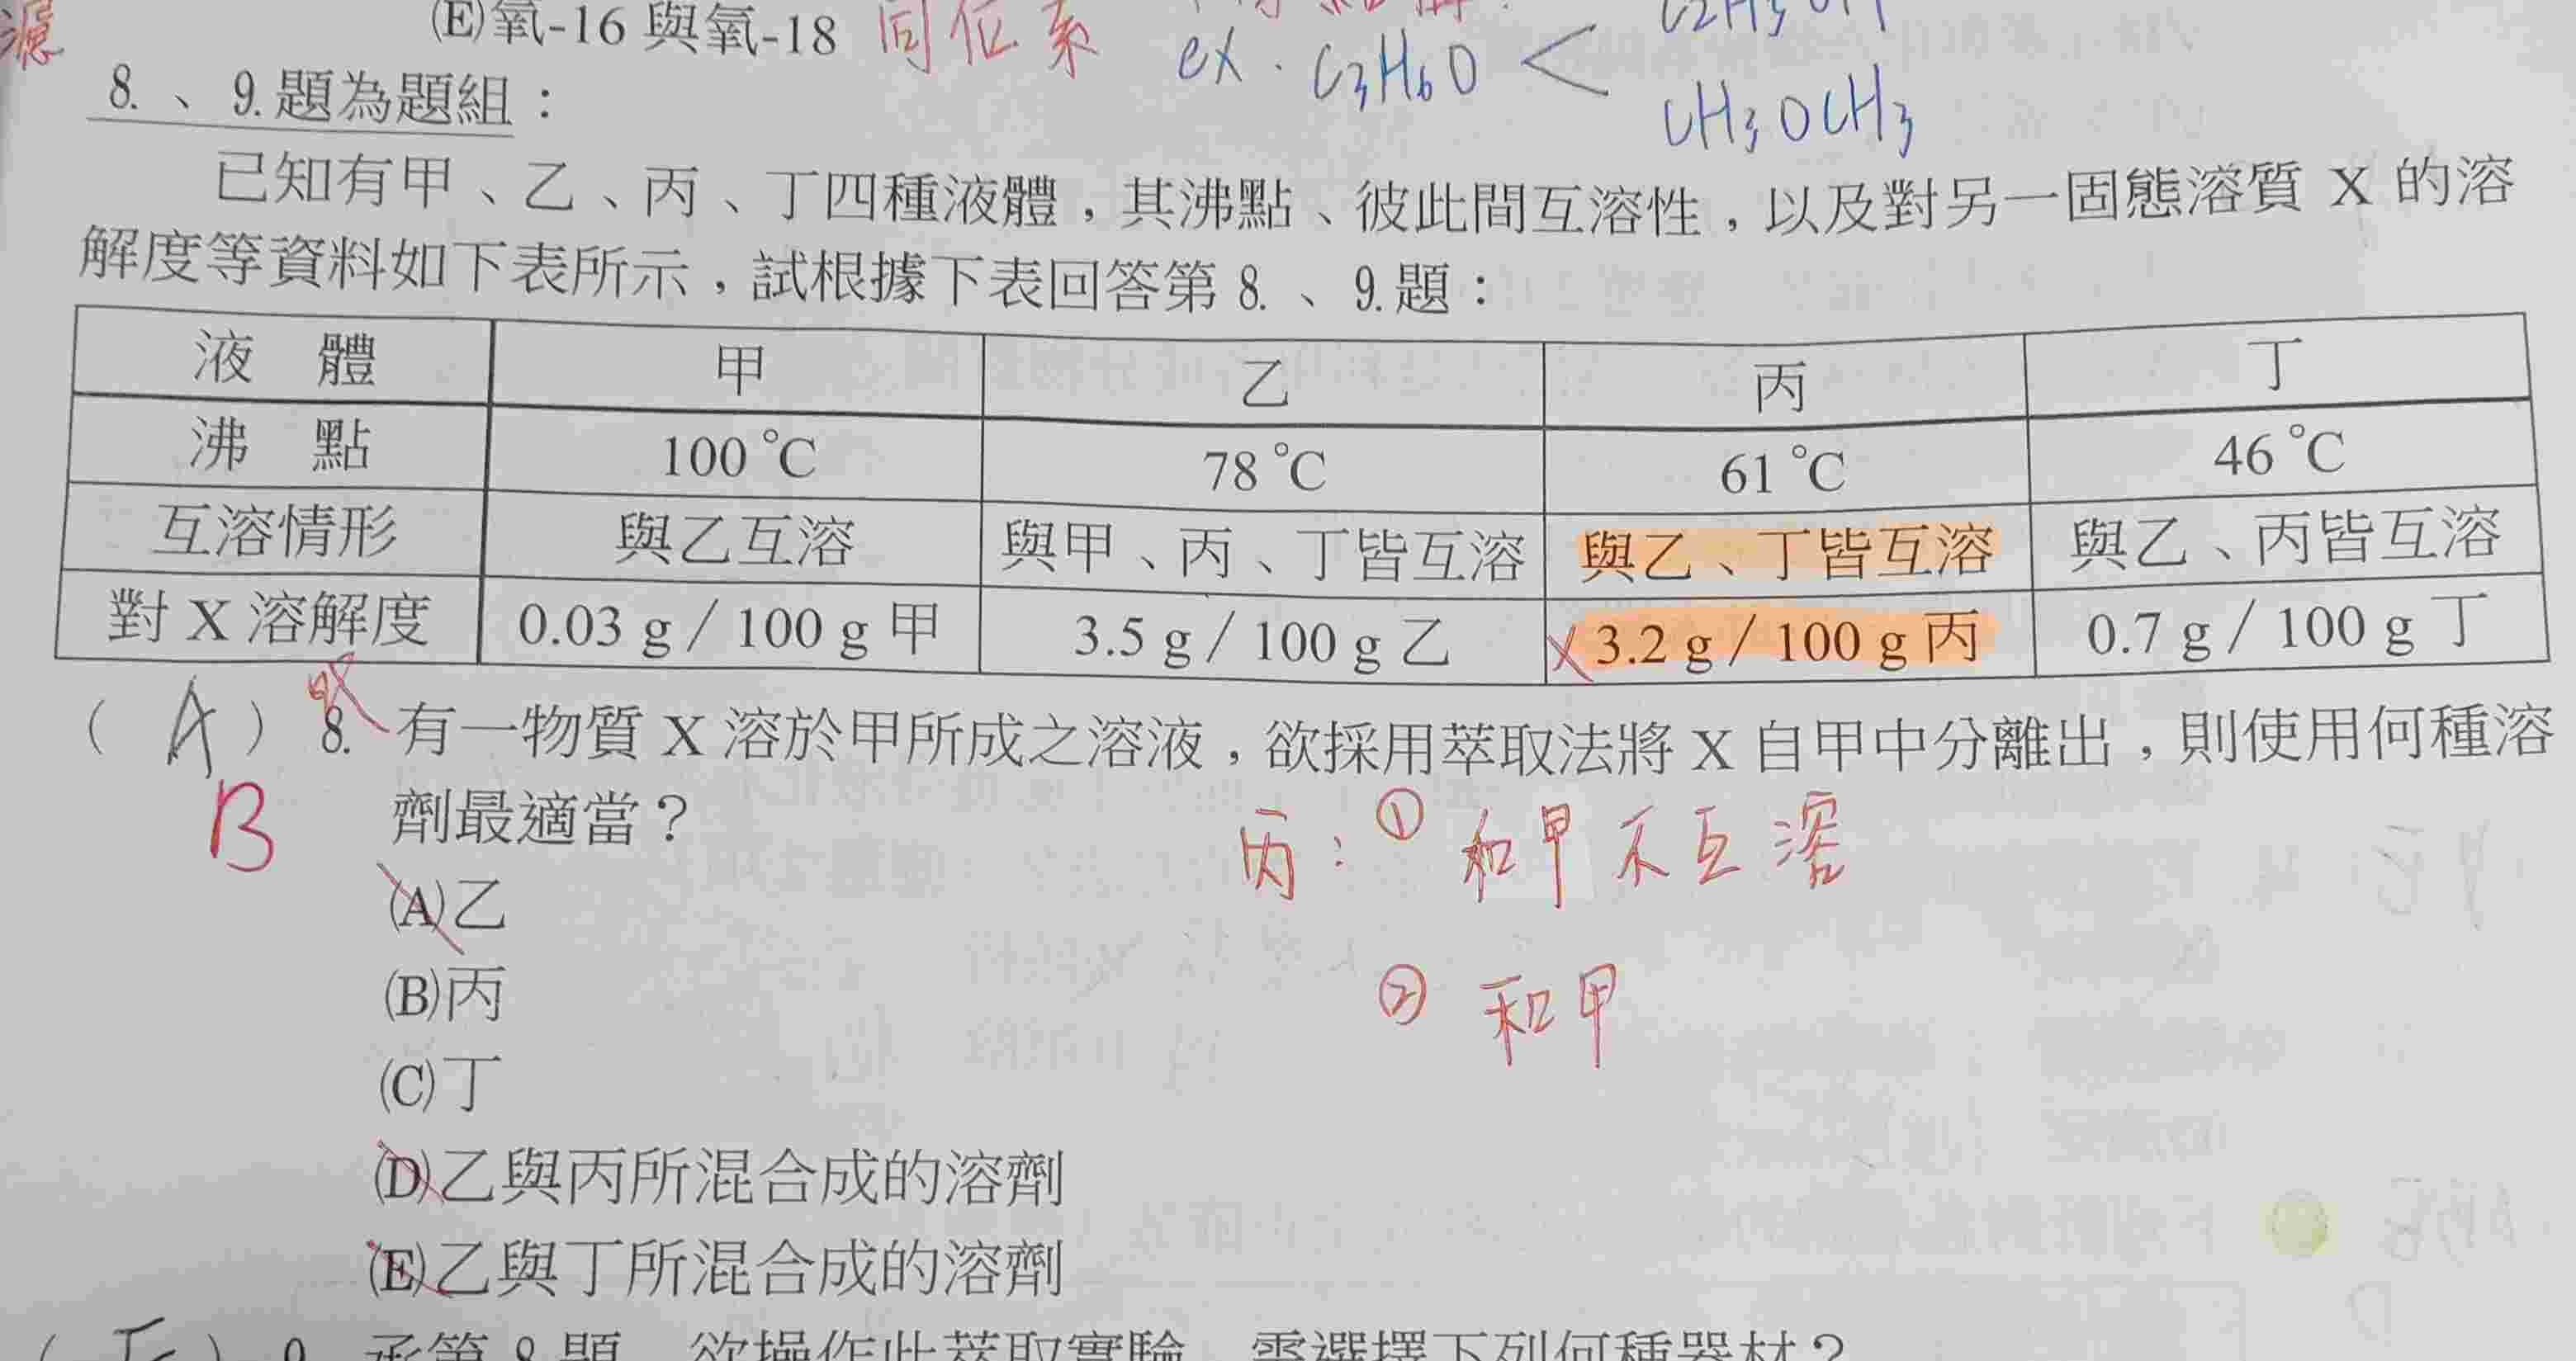 濾
(E)氧-16 與氧-18 同位素
ex. C3H6O < CH3OCH3
8.、9.題為題組：
已知有甲、乙、丙、丁四種液體，其沸點、彼此間互溶性，以及對另一固態溶質 X 的溶
解度等資料如下表所示，試根據下表回答第 8.、9.題：
液 體 甲 乙 丙 丁
沸 點 100 ℃ 78 ℃ 61 ℃ 46 ℃
互溶情形 與乙互溶 與甲、丙、丁皆互溶 與乙、丁皆互溶 與乙、丙皆互溶
對 X 溶解度 0.03 g／100 g 甲 3.5 g／100 g 乙 3.2 g／100 g 丙 0.7 g／100 g 丁
( A ) 8. 有一物質 X 溶於甲所成之溶液，欲採用萃取法將 X 自甲中分離出，則使用何種溶
B 劑最適當？
丙：① 和甲不互溶
(A)乙
(B)丙
② 和甲
(C)丁
(D)乙與丙所混合成的溶劑
(E)乙與丁所混合成的溶劑
9. 承第 8 題，欲操作此萃取實驗，需選擇下列何種器材？